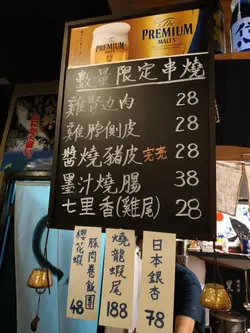 The
PREMIUM
MALT'S
PREMIUM
MALT'S
數量限定串燒
雞腎边肉 28
雞脖側皮 28
醬燒豬皮 完売 28
墨汁燒腸 38
七里香(雞尾) 28
櫻花蝦
豚肉卷飯團
48
燒龍蝦尾
188
日本銀杏
78